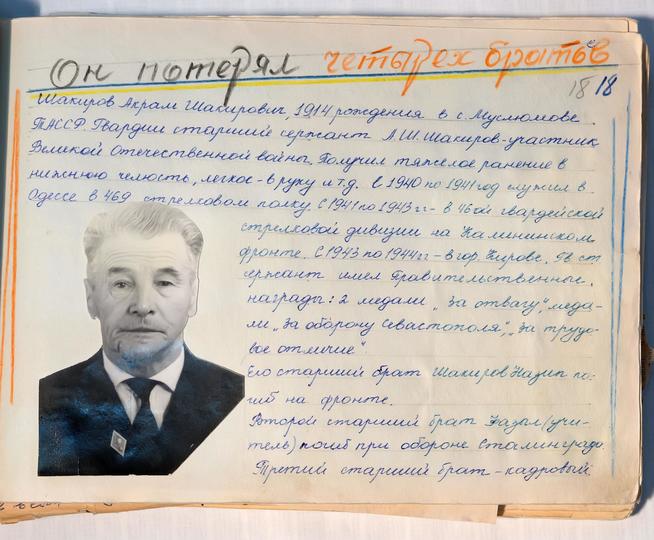 Он потерял четырех братьев
18 18
Шакиров Акрам Шакирович, 1914 рождения в с. Муслюмове
ТАССР. Гвардии старший сержант А.Ш. Шакиров-участник
Великой Отечественной войны. Получил тяжелое ранение в
нижнюю челюсть, легкое-в руку и т.д. в 1940 по 1941 год служил в
Одессе в 469 стрелковом полку с 1941 по 1943 гг- в 46ой гвардейской
стрелковой дивизии на Калининском
фронте. С 1943 по 1944 гг-в гор. Кирове. Гв ст
сержант имел Правительственные
награды: 2 медали „За отвагу", меда-
ли „За оборону Севастополя", „За трудо-
вое отличие".
Его старший брат Шакиров Назип по-
гиб на фронте.
Второй старший брат (учи-
тель) погиб при обороне Сталинграда.
Третий старший брат-кадровый